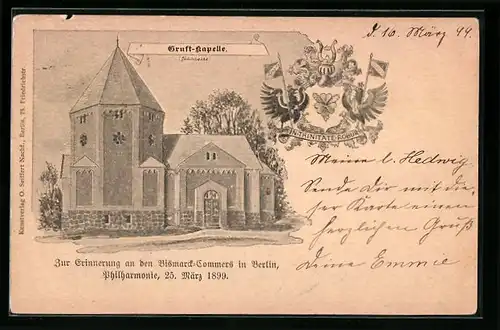 Gruft-Kapelle.
d. 10. März 99.
IN TRINITATE ROBUR
Meine l. Hedwig.
Sende Dir mit die-
ser Karte einen
herzlichen Gruß
Deine Emmee
Zur Erinnerung an den Bismarck-Commers in Berlin,
Philharmonie, 25. März 1899.
Kunstverlag O. Seiffert Nachf., Berlin, 73. Friedrichstr.